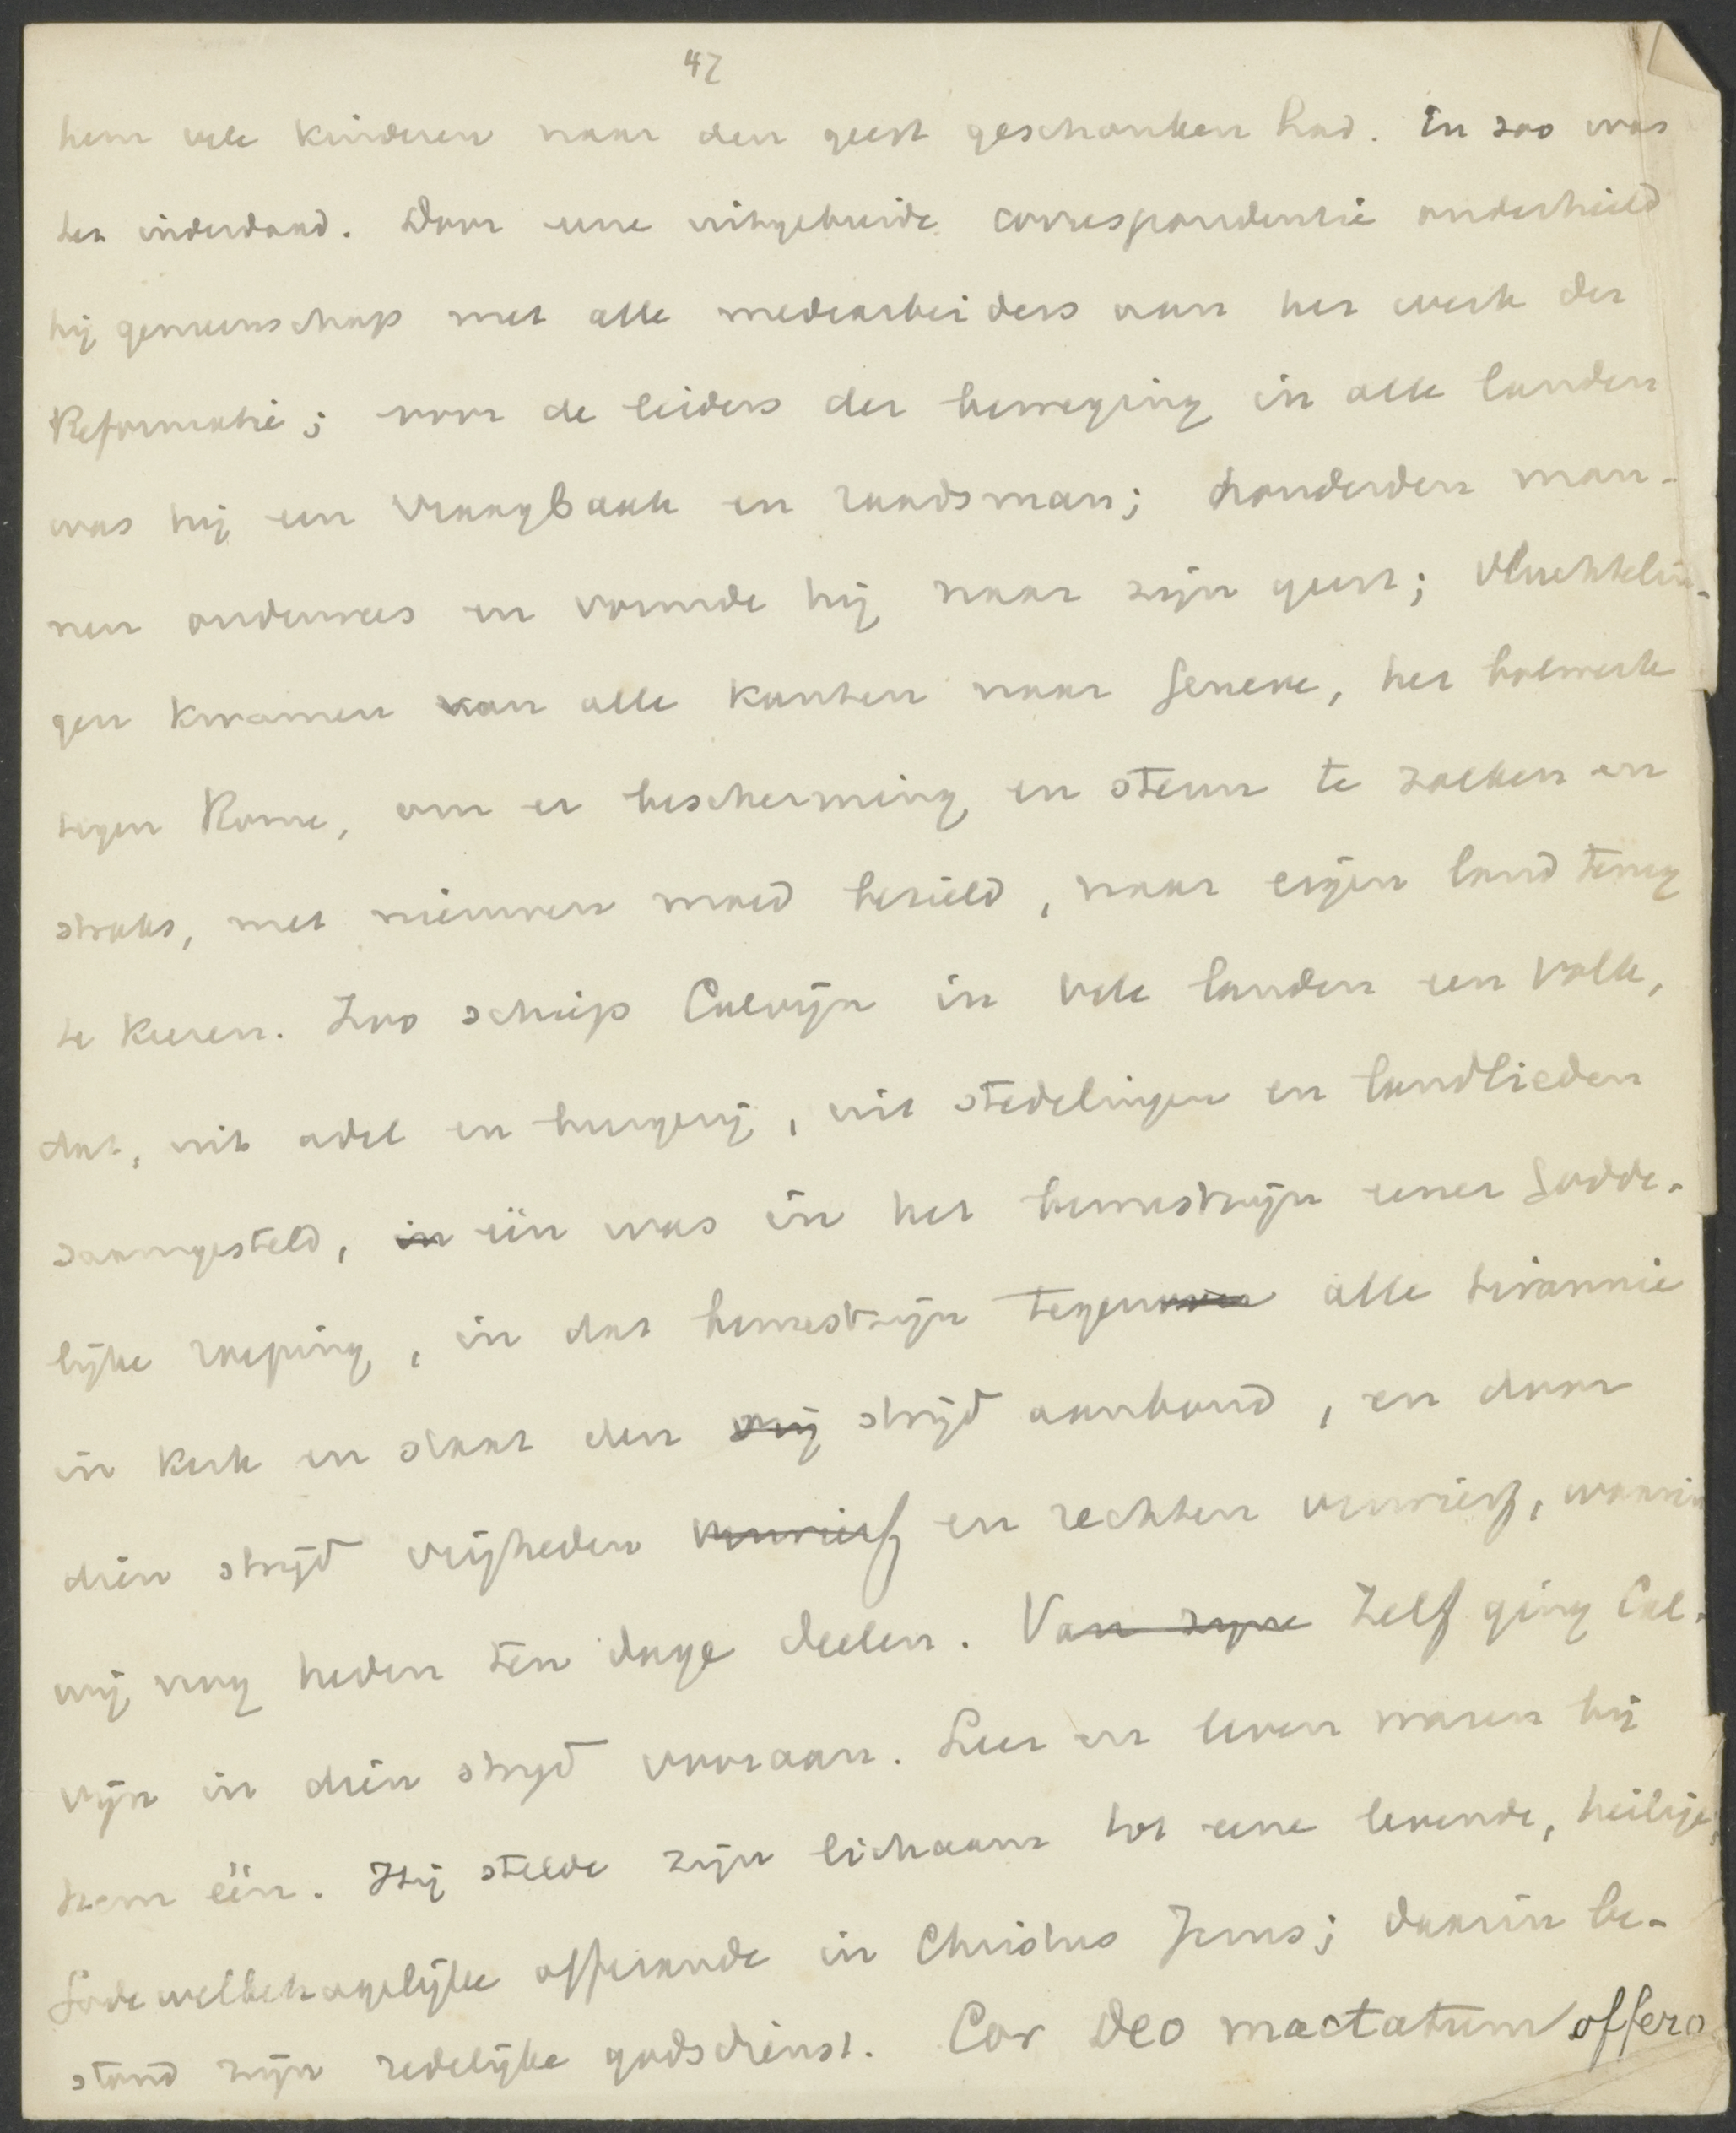 47
hem vele kinderen naar den geest geschonken had. En zoo was
het inderdaad. Door eene uitgebreide correspondentie onderhield
hij gemeenschap met alle medearbeiders aan het werk der
Reformatie; voor de leiders der beweging in alle landen
was hij een vraagbaak en raadsman; honderden man-
nen onderwees en vormde hij naar zijn geest; vluchtelin-
gen kwamen van alle kanten naar Geneve, het bolwerk
tegen Rome, om er bescherming en steun te zoeken en
straks, met nieuwen moed bezield, naar eigen land terug
te keeren. Zoo schiep Calvijn in vele landen een volk,
dat, uit adel en burgerij, uit stedelingen en landlieden
saamgesteld, in één was in het bewustzijn eener Godde-
lijke roeping, in dat bewustzijn tegenover alle tirannie
in kerk en staat den vrij strijd aanbond, en daar
dien strijd vrijheden verwierf en rechten verwierf, waarin
wij nog heden ten dage deelen. Van zijne Zelf ging Cal-
vijn in dien strijd vooraan. Leer en leven waren bij
hem één. Hij stelde zijn lichaam tot eene levende, heilige,
Gode welbehagelijke offerande in Christus Jezus; daarin be-
stond zijn redelijke godsdienst. Cor Deo mactatum offero